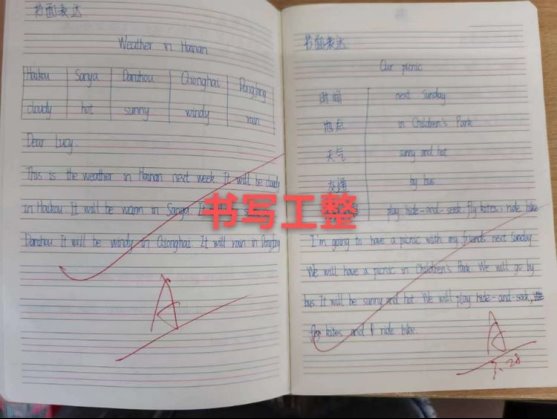 书面表达
Weather in Hainan
Haikou Sanya Danzhou Qionghai Dongfang
cloudy hot sunny windy rain
Dear Lucy
This is the weather in Hainan next week. It will be cloudy
in Haikou. It will be warm in Sanya.
Danzhou. It will be windy in Qionghai. It will rain in Dongfang
A
书面表达
Our picnic
时间 next Sunday
地点 in Children's Park
天气 sunny and hot
交通 by bus
play hide-and-seek, fly kites, ride bike
I'm going to have a picnic with my friends next Sunday.
We will have a picnic in Children's Park. We will go by
bus. It will be sunny and hot. We will play hide-and-seek,
kites and ride bike.
A
书写工整